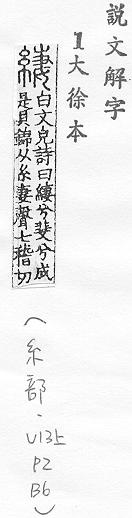 説文解字
1大徐本
緀 白文皃詩曰緀兮斐兮成
是貝錦从糸妻聲七稽切
(糸部.V13上
P2
B6)